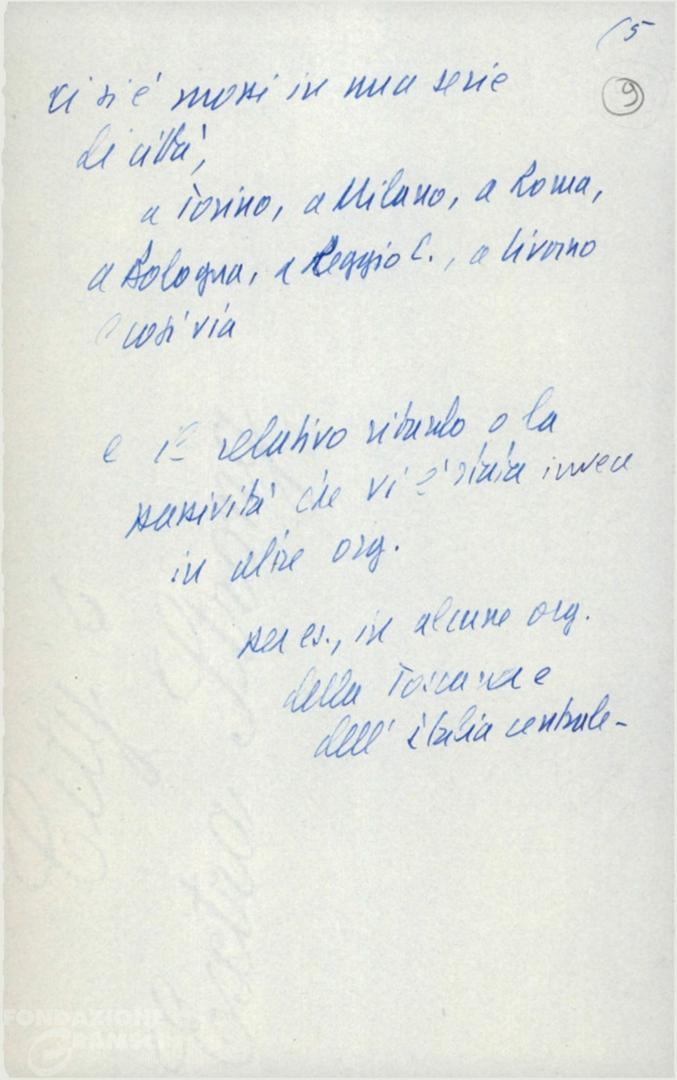 (5
9
ci si è mossi in una serie
di città,
a Torino, a Milano, a Roma,
a Bologna, a Reggio C., a Livorno
e così via
e il relativo ritardo o la
passività che vi è stata invece
in altre org.
per es., in alcune org.
della Toscana e
dell'Italia centrale-
FONDAZIONE
GRAMSCI